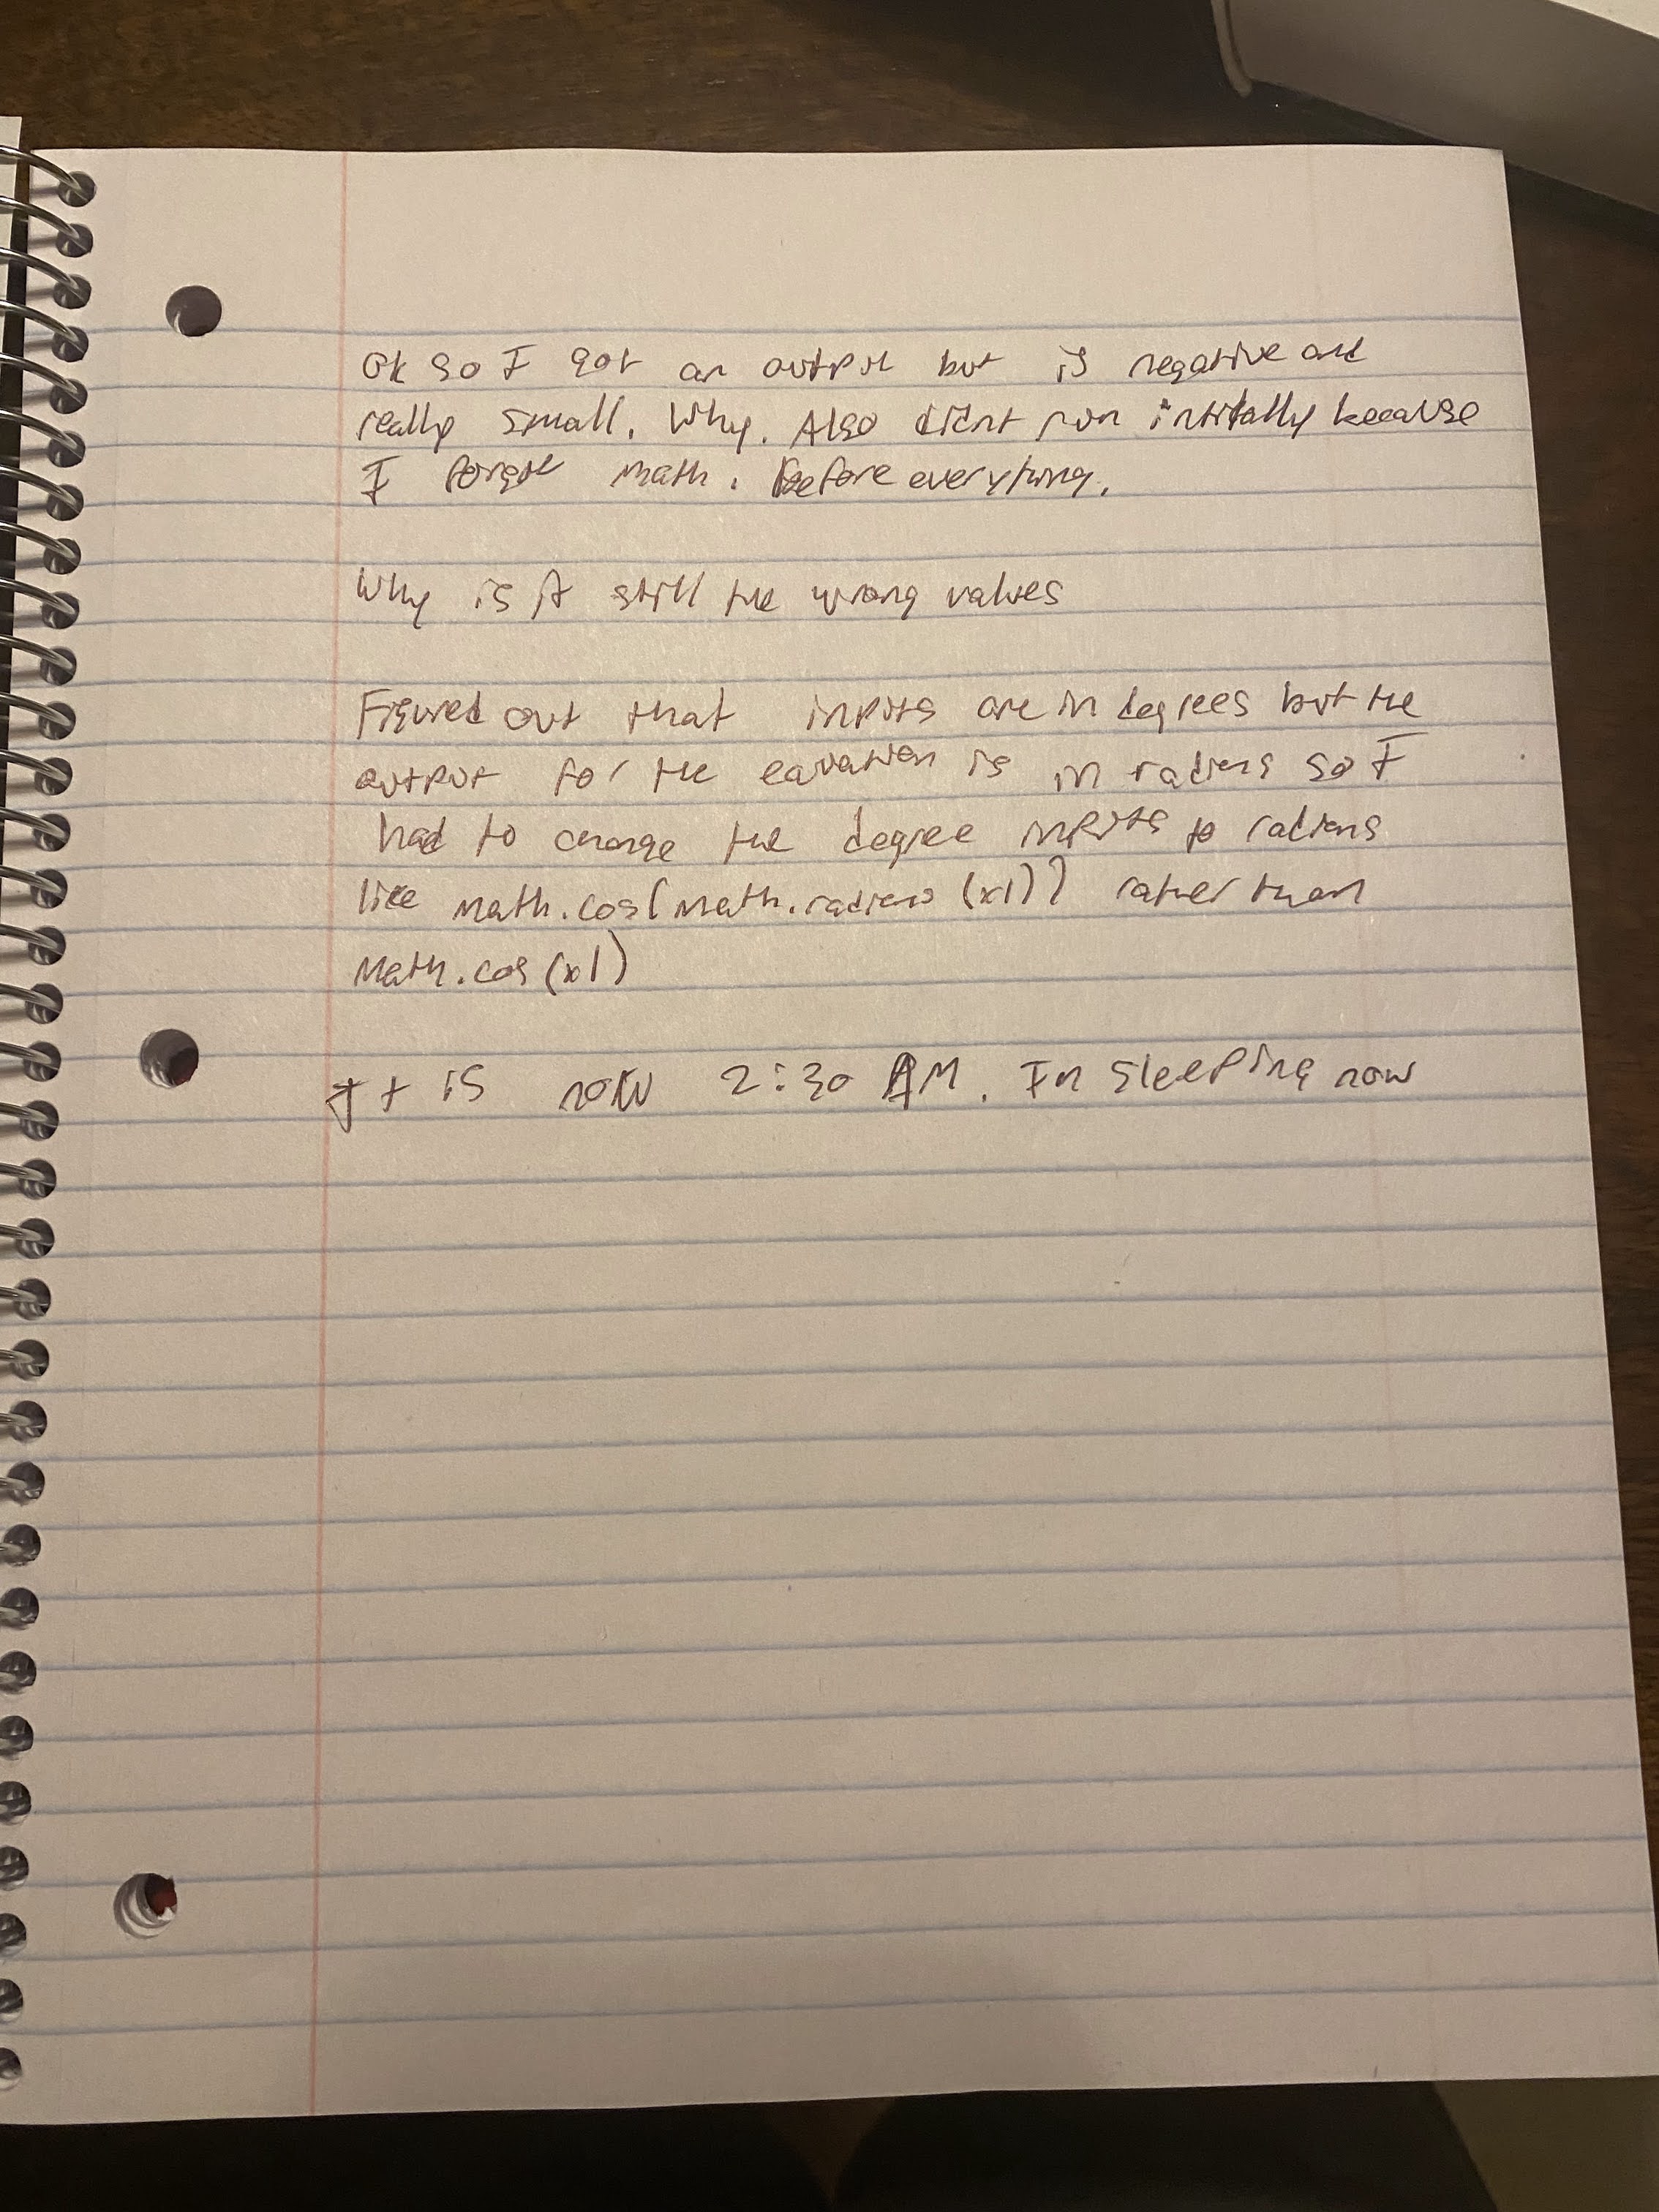 Ok so I got an output but is negative and
really small. Why. Also didnt run intitally because
I forgot math. before everything.
Why is it still the wrong values
Figured out that inputs are in degrees but the
output for the equation is in radians so I
had to change the degree inputs to radians
like math.cos(math.radians (x1)) rather than
math.cos (x1)
It is now 2:30 AM. Im sleeping now